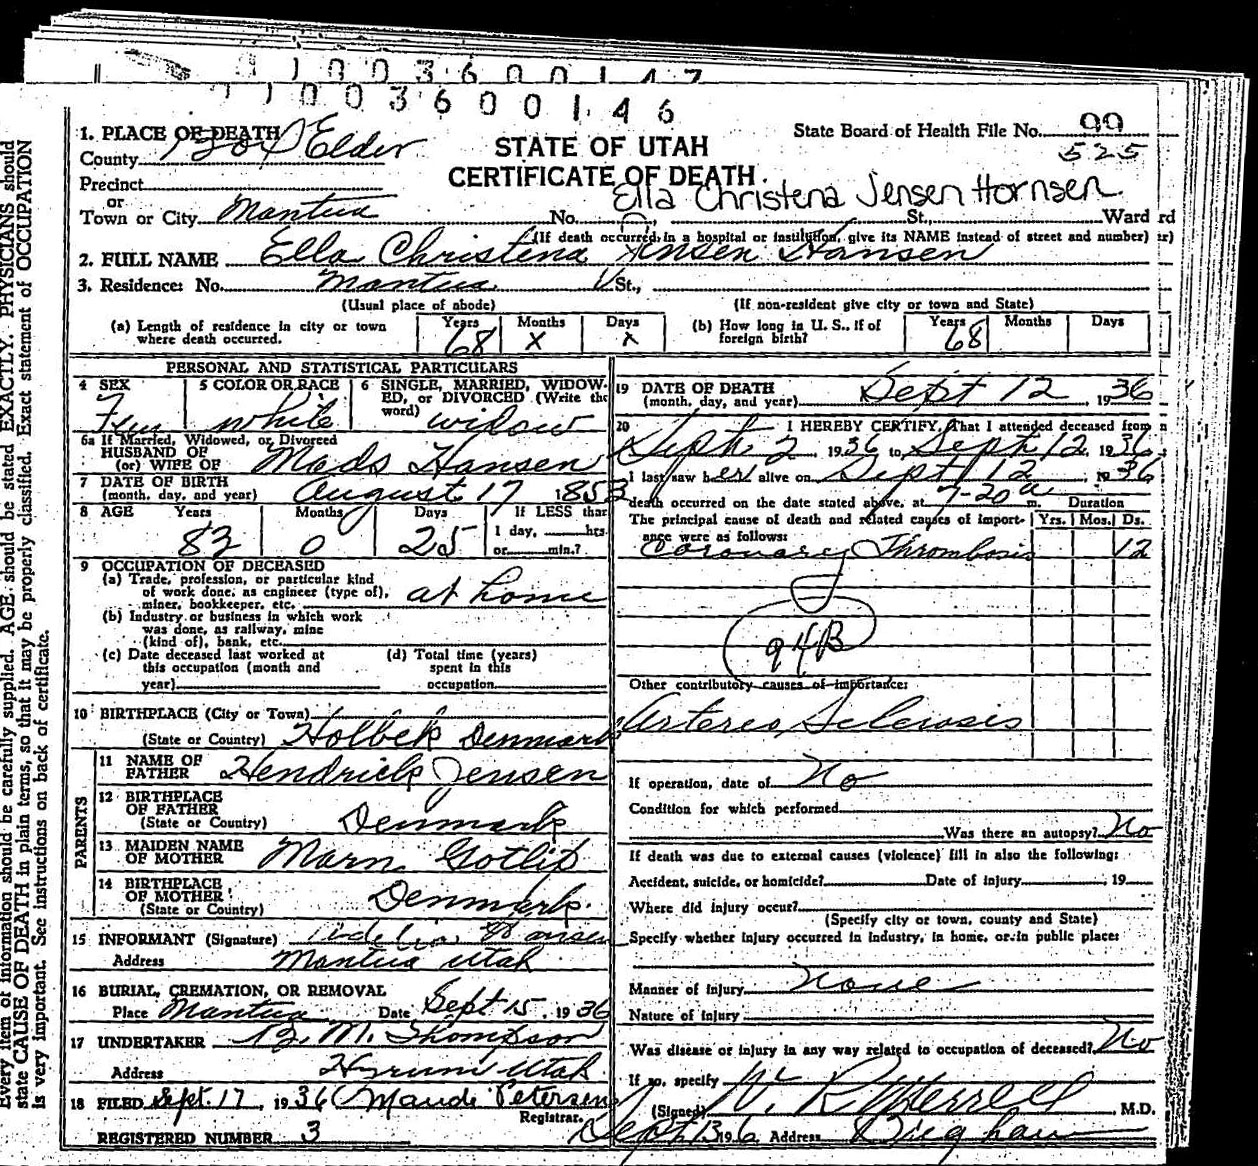 1003600147
1003600146
1. PLACE OF DEATH
County Box Elder
STATE OF UTAH
CERTIFICATE OF DEATH
State Board of Health File No. 99
525
Precinct
or
Town or City Mantua
Ella Christena Jensen Hornsen
No. St., Ward rd
(If death occurred in a hospital or institution, give its NAME instead of street and number) er)
2. FULL NAME Ella Christena Jensen Hansen
3. Residence: No. Mantua St.,
(Usual place of abode) (If non-resident give city or town and State)
(a) Length of residence in city or town where death occurred. Years 68 Months x Days x
(b) How long in U. S., if of foreign birth? Years 68 Months Days
PERSONAL AND STATISTICAL PARTICULARS
4 SEX Fem
5 COLOR OR RACE white
6 SINGLE, MARRIED, WIDOWED, or DIVORCED (Write the word) widow
6a If Married, Widowed, or Divorced
HUSBAND OF
(or) WIFE OF Mads Hansen
7 DATE OF BIRTH
(month, day, and year) August 17 1853
8 AGE Years 83 Months 0 Days 25 If LESS than
1 day, hrs.
or min.?
9 OCCUPATION OF DECEASED
(a) Trade, profession, or particular kind
of work done, as engineer (type of),
miner, bookkeeper, etc. at home
(b) Industry or business in which work
was done, as railway, mine
(kind of), bank, etc.
(c) Date deceased last worked at
this occupation (month and
year)
(d) Total time (years)
spent in this
occupation
10 BIRTHPLACE (City or Town)
(State or Country) Holbek Denmark
PARENTS
11 NAME OF
FATHER Hendrick Jensen
12 BIRTHPLACE
OF FATHER
(State or Country) Denmark
13 MAIDEN NAME
OF MOTHER Marn Gotlip
14 BIRTHPLACE
OF MOTHER
(State or Country) Denmark.
15 INFORMANT (Signature) Hansen
Address Mantua Utah
16 BURIAL, CREMATION, OR REMOVAL
Place Mantua Date Sept 15, 1936
17 UNDERTAKER B. M. Thompson
Address Hyrum Utah
18 FILED Sept. 17, 1936 Maude Petersen
Registrar.
REGISTERED NUMBER 3
19 DATE OF DEATH
(month, day, and year) Sept 12, 1936
20 I HEREBY CERTIFY, That I attended deceased from n
Sept. 2, 1936 to Sept 12, 1936
I last saw her alive on Sept 12, 1936
death occurred on the date stated above, at 7-20 a m.
Duration
The principal cause of death and related causes of importance were as follows: Yrs. Mos. Ds.
Coronary Thrombosis 12
94B
Other contributory causes of importance:
Arterio Sclerosis
If operation, date of No
Condition for which performed
Was there an autopsy? No
If death was due to external causes (violence) fill in also the following:
Accident, suicide, or homicide? Date of injury , 19
Where did injury occur?
(Specify city or town, county and State)
Specify whether injury occurred in industry, in home, or in public place:
Manner of Injury None
Nature of Injury
Was disease or injury in any way related to occupation of deceased? No
If so, specify
(Signed) W. R. Merrell M.D.
Sept. 13 1936 Address Brigham
Every item of information should be carefully supplied. AGE should be stated EXACTLY. PHYSICIANS should
state CAUSE OF DEATH in plain terms, so that it may be properly classified. Exact statement of OCCUPATION
is very important. See instructions on back of certificate.